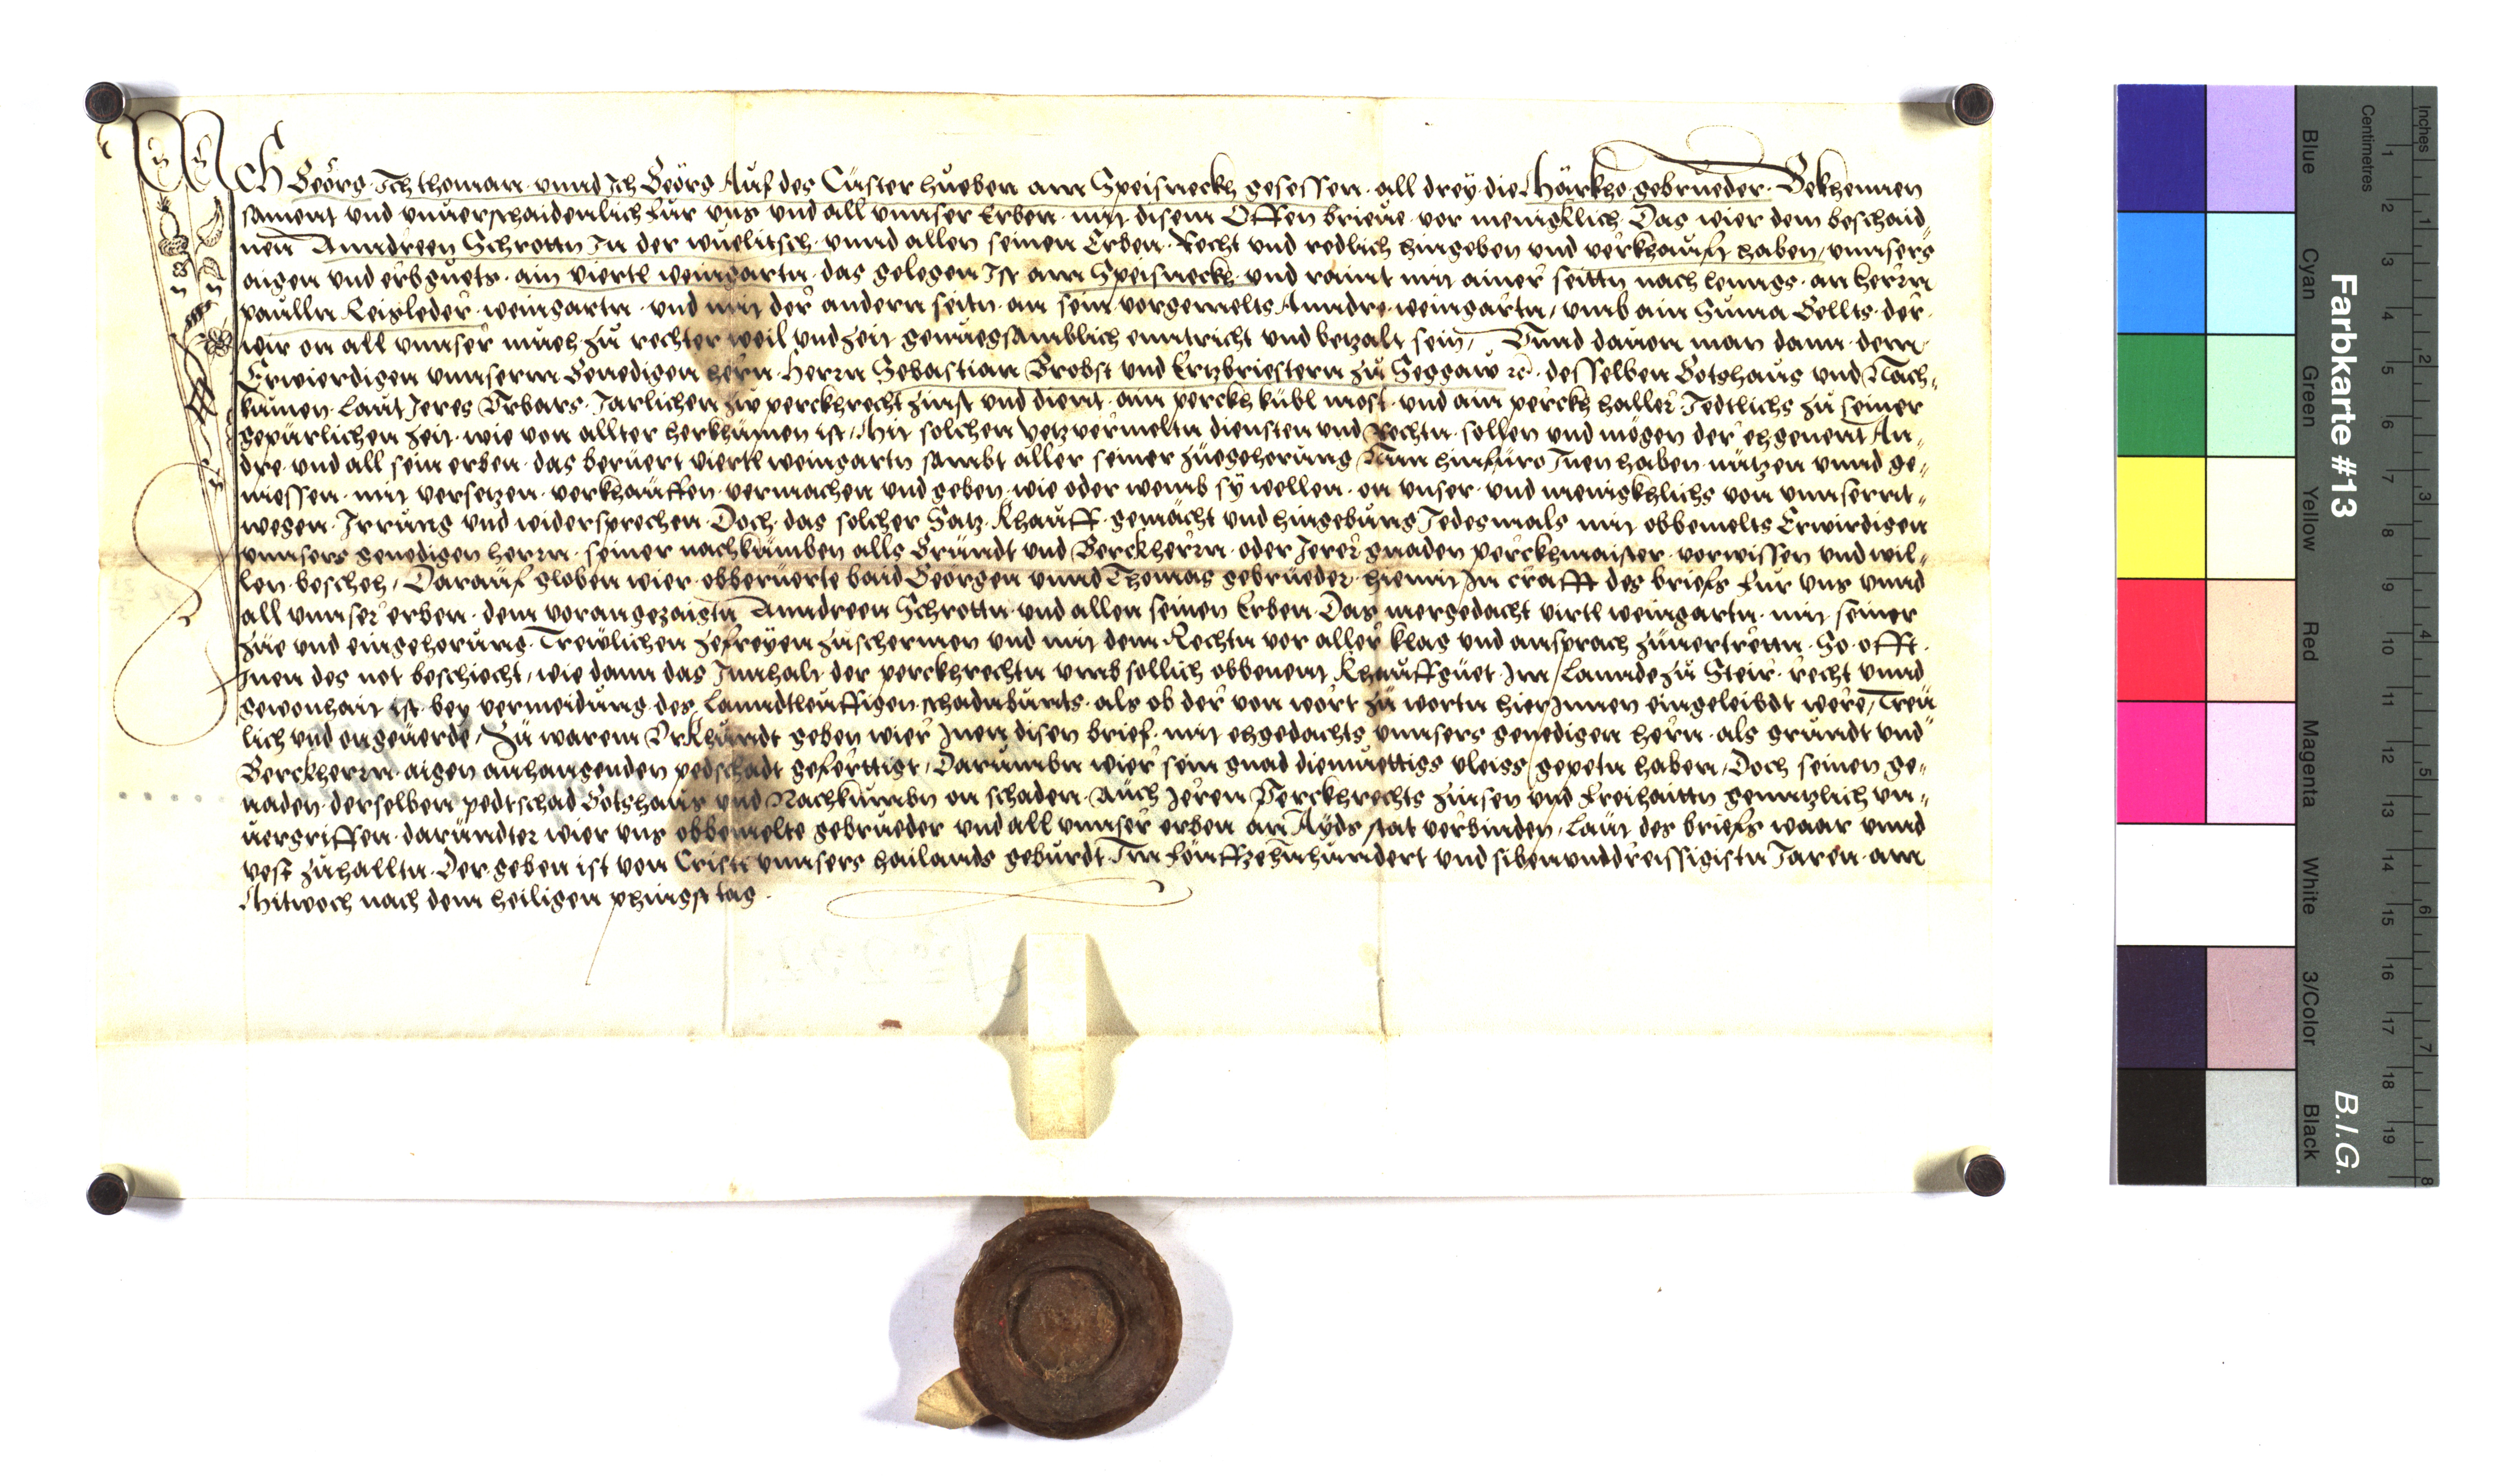 Ich Geörg. Ich thoman. vnnd Ich Geörg Auf des Cüster hueben am Speisneckh gesessen. all drey die Härkho gebrueder. Bekhennen
sament vnd vnuerschaidenlich für vns vnd all vnnser Erben. mit disem Offen brieue. vor menigklich. Das wier dem beschaid„
nen Anndreen Schrottn In der wuelitsch. vnnd allen seinen Erben. Recht vnd redlich hingeben vnd verkhaufft haben, vnnsers
aigen vnd erbguets. ain viertl weingartn. das gelegen Ist am Speisneckh. vnd raint mit ainer seittn nach lenngs. an herrn
paulln Leixleder weingartn. vnd mit der andern seitn. an sein vorgemelts Anndre. weingartn, vmb ain Suma Gellts. der
wir on all vnnser mueh. zu rechter weil vnd zeit genuegsamblich enntricht vnd betzalt sein, Vnnd dauon man dann. dem
Erwierdigen vnnserm Genedigen hern. Herrn Sebastian Brobst vnd Ertzbriestern zu Seggaw rc. desselben Gotshaus vnd Nach„
kumen. Laut Jeres Vrbars. Jarlichen zw perckhrecht zinst vnd dient. ain perckh kübl most. vnd ain perckh haller. Jedtlichs zu seiner
gepürlichen zeit. wie von allter herkhumen ist, Mit solchen yetz vermeltn diensten vnd Rechtn. sollen vnd mögen der ehgenent An„
dre. vnd all sein erben. das beruert viertl weingartn sambt aller seiner zuegehorung Nun hinfüro Inen haben. nutzen vnnd ge„
niessen. mit versetzen. verkhauffen. vermachen vnd geben. wie oder wemb sy wellen. on vnser. vnd menigkhlichs von vnnsernt„
wegen. Irrung vnd widersprechen. Doch. das solcher Satz. Khauff. gemächt vnd hingebung Jedesmals mit obbemelts Erwirdigen
vnnsers genedigen herrn. seiner nachkumben alls Grundt vnd Perckherrn. oder Jerer gnaden perckhmaister. vorwissen vnd wil„
len. bescheh, Darauf globen wier. obberuerte baid Geörgen vnnd Thomas gebrueder. hiemit In crafft des briefs für vns vnnd
all vnnser erben. dem vorangezaigtn Anndreen Schrottn vnd allen seinen Erben. Das mergedacht virtl weingartn. mit seiner
zue vnd eingehorung. Trewlichen zefreyen zuschermen vnd mit dem Rechtn vor aller klag vnd ansprach zuuertretn. So offt.
Inen des not beschiecht, wie dann das Innhalt der perckhrechtn vmb sollich obbenent Khauffguet. Im Lannde zu Steir. recht vnnd
gewonhait ist. bey vermeidung des Lanndtleuffigen schadnbunts. als ob der von wort zu wortn hierInnen eingeleibdt were, Treu
lich vnd ongeuerde, Zu warem Vrkhundt geben wier Inen disen brief. mit ehgedachts vnnsers genedigen hern. als grundt vnd
Perckherrn. aigen anhangenden pedschadt geferttigt, Darumbn wier sein gnad diemuettigs vleiss gepetn haben, Doch seinen ge„
naden. derselben pedtschad Gotshaus vnd Nachkumbn on schaden. Auch Jeren Perckhrechts zinsen vnd Freihaittn genntzlich vn„
uergriffen. darundter wier vns obbemelte gebrueder vnd all vnnser erben an Ayds stat verbinden, Laut des briefs waar vnnd
vest zuhalltn. Der geben ist von Cristi vnnsers hailands geburdt. Im fönffzehnhundert vnd sibenunddreissigistn Jaren. am
Mitwoch nach dem heiligen phingstag.
Farbkarte #13
B.I.G.
Inches
Centimetres
Blue
Cyan
Green
Yellow
Red
Magenta
White
3/Color
Black
1 2 3 4 5 6 7 8 9 10 11 12 13 14 15 16 17 18 19
1 2 3 4 5 6 7 8